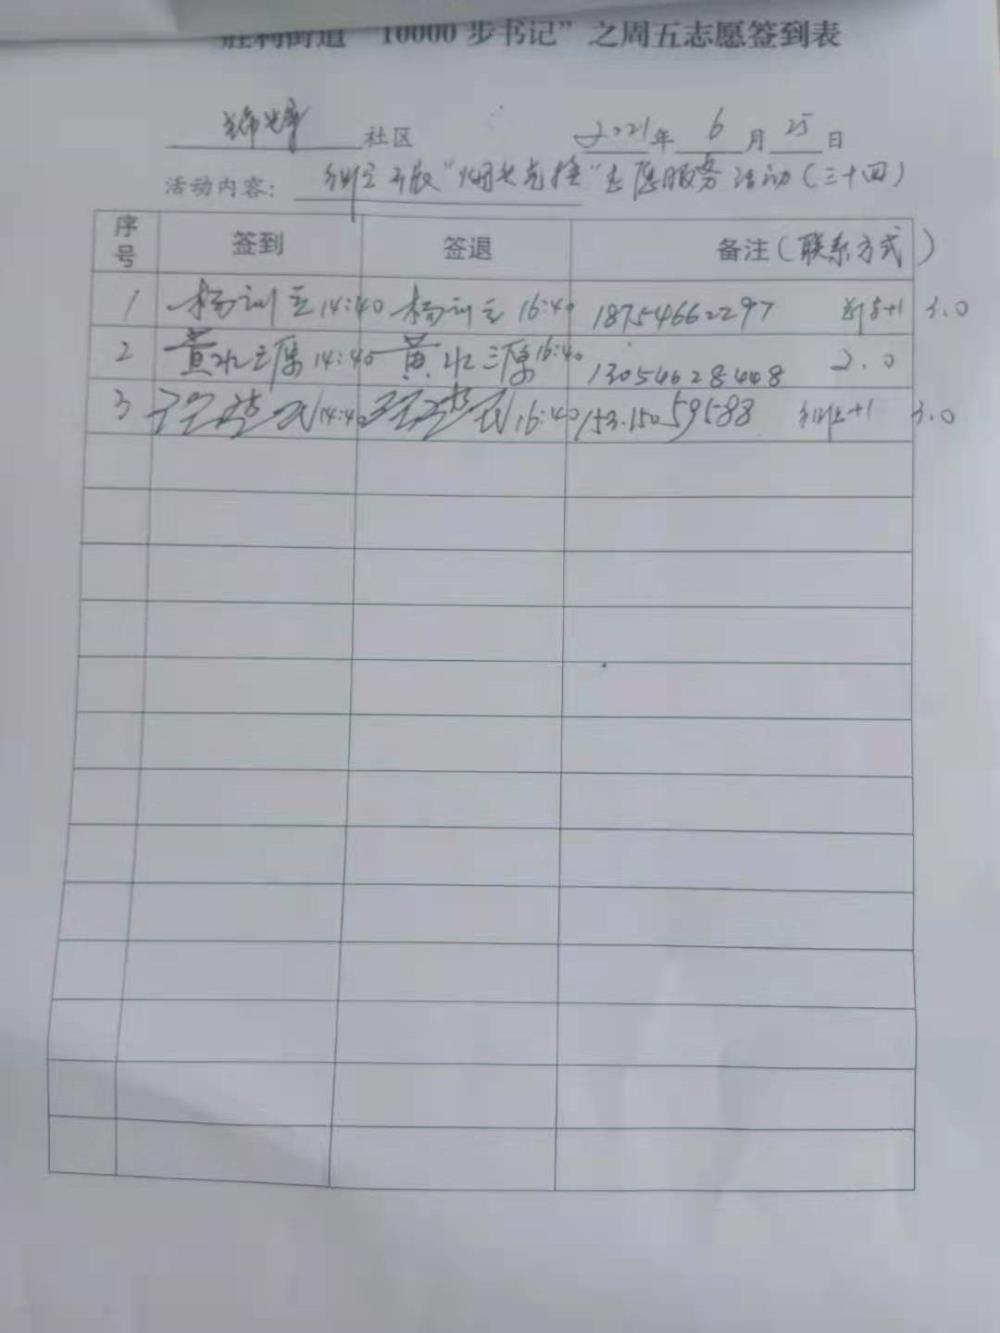 胜利街道“10000步书记”之周五志愿签到表
社区 2021年 6 月 25 日
活动内容： 开展“烟头兑换”志愿服务活动（三十四）
序号 签到 签退 备注（联系方式）
1 杨训 14:40 杨训 16:40 18754662297 +1 3.0
2 黄 14:40 黄 16:40 13054628448 2.0
3 14:40 16:40 153.150 59588 +1 3.0